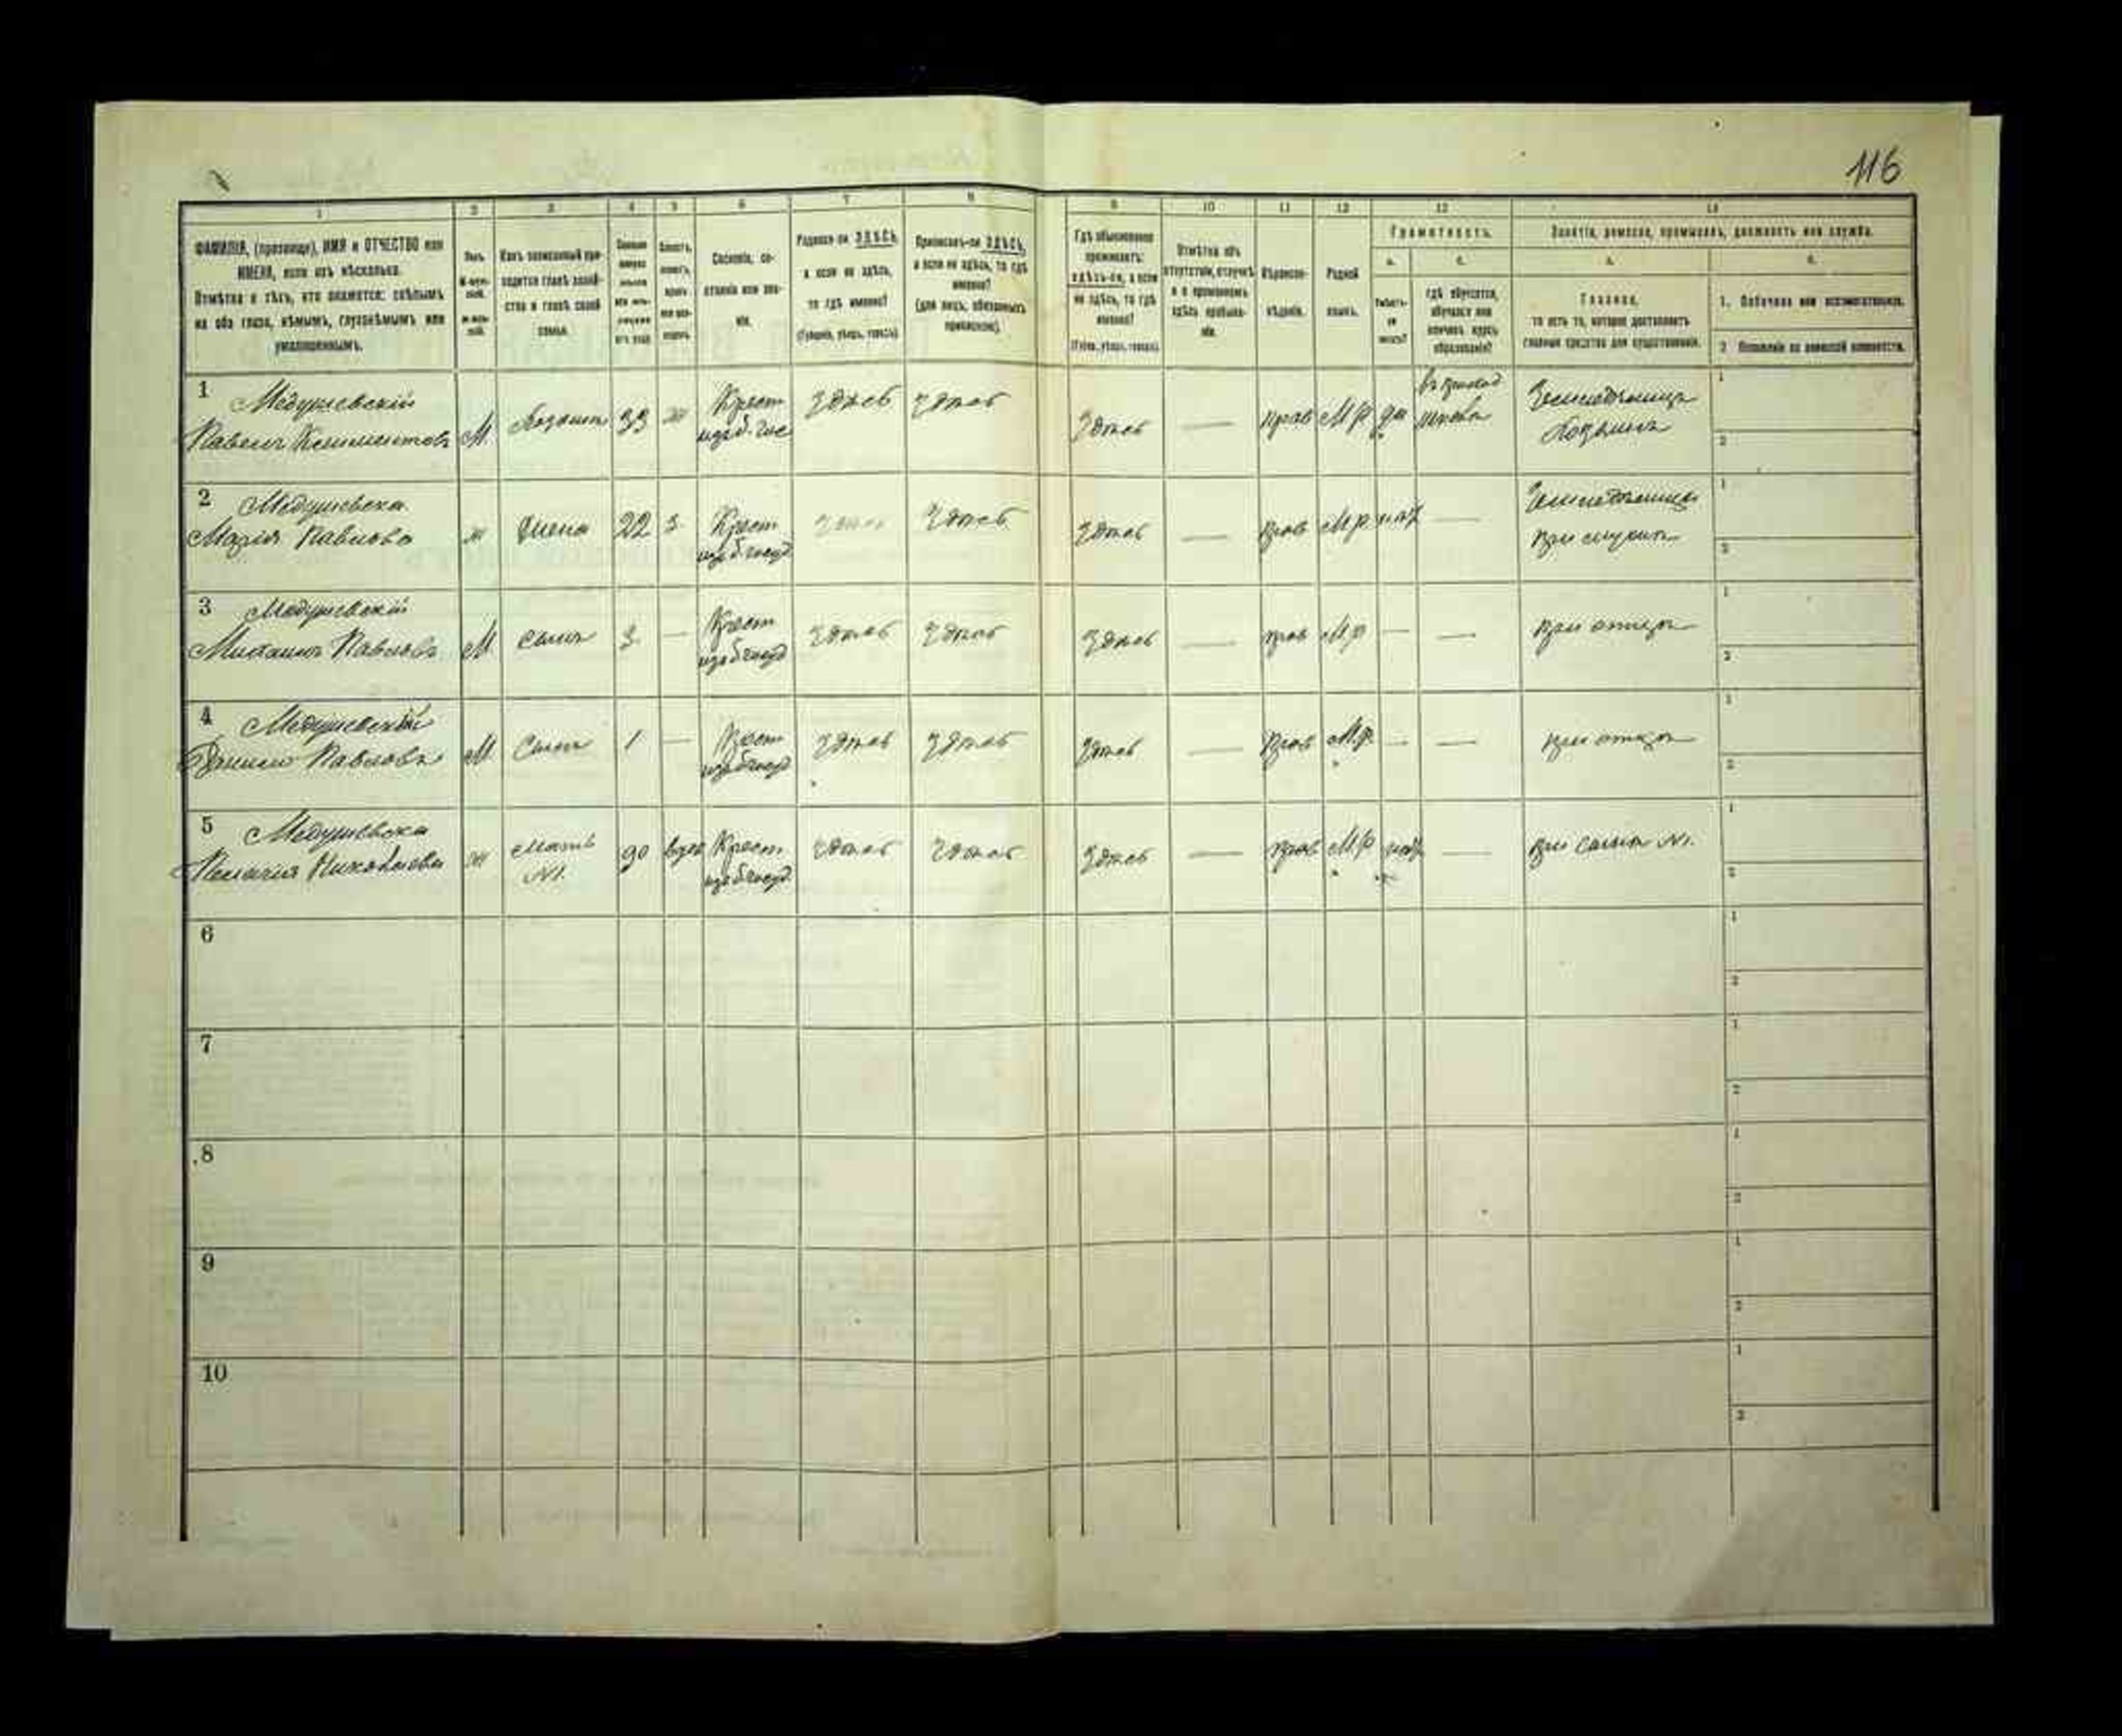 116
1 2 3 4 5 6 7 8 9 10 11 12 13 14
ФАМИЛІЯ, (прозвище), ИМЯ и ОТЧЕСТВО или
ИМЕНА, если ихъ нѣсколько.
Отмѣтка о тѣхъ, кто окажется: слѣпымъ
на оба глаза, нѣмымъ, глухонѣмымъ или
умалишеннымъ.
Полъ.
Какъ записанный при-
ходится главѣ хозяй-
ства и главѣ своей
семьи.
Сословіе, со-
стояніе или зва-
ніе.
Родился-ли ЗДѢСЬ,
а если не здѣсь,
то гдѣ именно?
(Губернія, уѣздъ, городъ).
Приписанъ-ли ЗДѢСЬ,
а если не здѣсь, то гдѣ
именно?
(для лицъ, обязанныхъ
припискою).
Гдѣ обыкновенно
проживаетъ:
здѣсь-ли, а если
не здѣсь, то гдѣ
именно?
(Губер., уѣздъ, городъ).
Отмѣтка объ
отсутствіи, отлучкѣ
и о временномъ
здѣсь пребыва-
ніи.
Вѣроиспо-
вѣданіе.
Родной
языкъ.
Грамотность.
а. б.
Умѣетъ-
ли
читать?
гдѣ обучается,
обучался или
кончилъ курсъ
образованія?
Занятіе, ремесло, промыселъ, должность или служба.
а. б.
Главное,
то есть то, которое доставляетъ
главныя средства для существованія.
1. Побочное или вспомогательное.
2. Положеніе по воинской повинности.
1 Медушевскій
Павелъ Климентовъ М. Хозяинъ 33 ж Крест
изъ б. гос Здѣсь Здѣсь Здѣсь — прав М.р да Земледѣлецъ
Хозяинъ 1
2
2 Медушевска
Марія Павлова ж Жена 22 з Крест
изъ б госуд Здѣсь Здѣсь Здѣсь — прав М.р нѣт — при мужѣ 1
2
3 Медушевскій
Михаилъ Павловъ М сынъ 3 — Крест
изъ б госуд Здѣсь Здѣсь Здѣсь — прав М.р — — при отцѣ 1
2
4 Медушевскій
Данило Павловъ М Сынъ 1 — Крест
изъ б госуд Здѣсь Здѣсь Здѣсь — прав М.р. — — при отцѣ 1
2
5 Медушевска
Пелагія Николаева ж Мать
№1. 90 вдов Крест
изъ б госуд Здѣсь Здѣсь Здѣсь — прав М.р нѣт — при сынѣ №1. 1
2
6 1
2
7 1
2
8 1
2
9 1
2
10 1
2